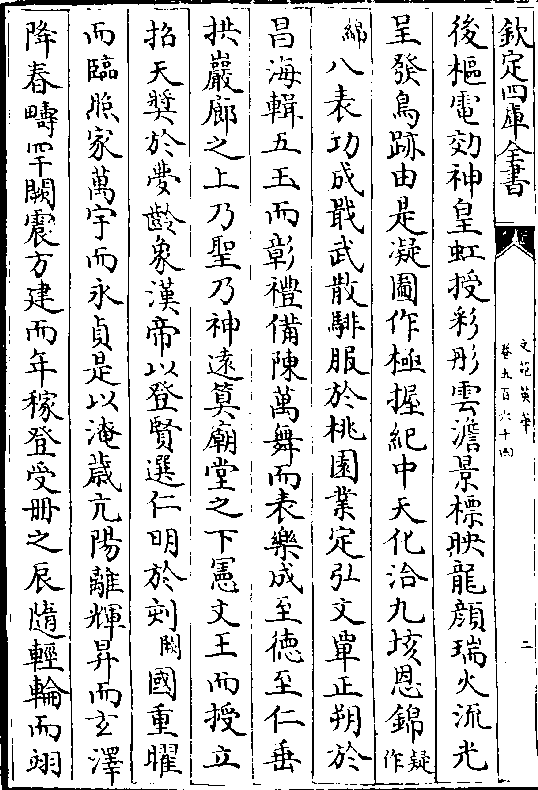 欽定四庫全書
文苑英華
卷五百六十四
二
後樞電効神皇虹授彩彤雲澹景標映龍顔瑞火流光
呈發鳥跡由是凝圖作極握紀中天化洽九垓恩錦疑作
綿八表功成戢武散騑服於桃園業定弘文單正朔於
昌海輯五玉而彰禮備陳萬舞而表樂成至德至仁垂
拱巖廊之上乃聖乃神遠筭廟堂之下憲文王而授立
招天奬於夢齡象漢帝以登賢選仁明於刻闕國重曜
而臨照家萬宇而永貞是以淹歲亢陽離輝昇而玄澤
降春疇罕闕震方建而年稼登受冊之辰隨輕輪而翊